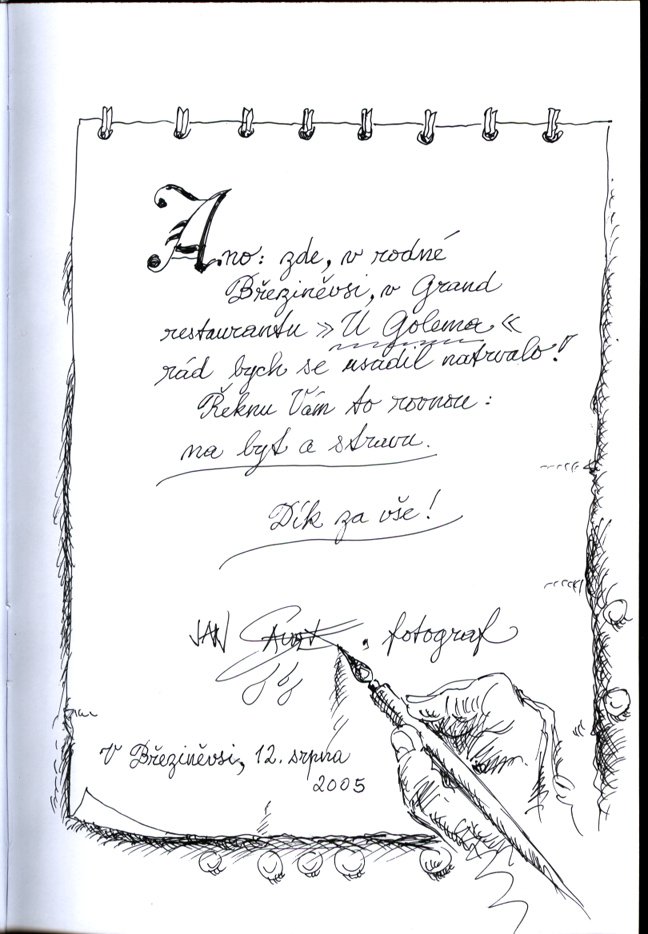 Ano: zde, v rodné
Březiněvsi, v Grand
restaurantu »U Golema«
rád bych se usadil natrvalo!
Řeknu Vám to rovnou:
na byt a stravu.
Dík za vše!
JAN , fotograf
V Březiněvsi, 12. srpna
2005